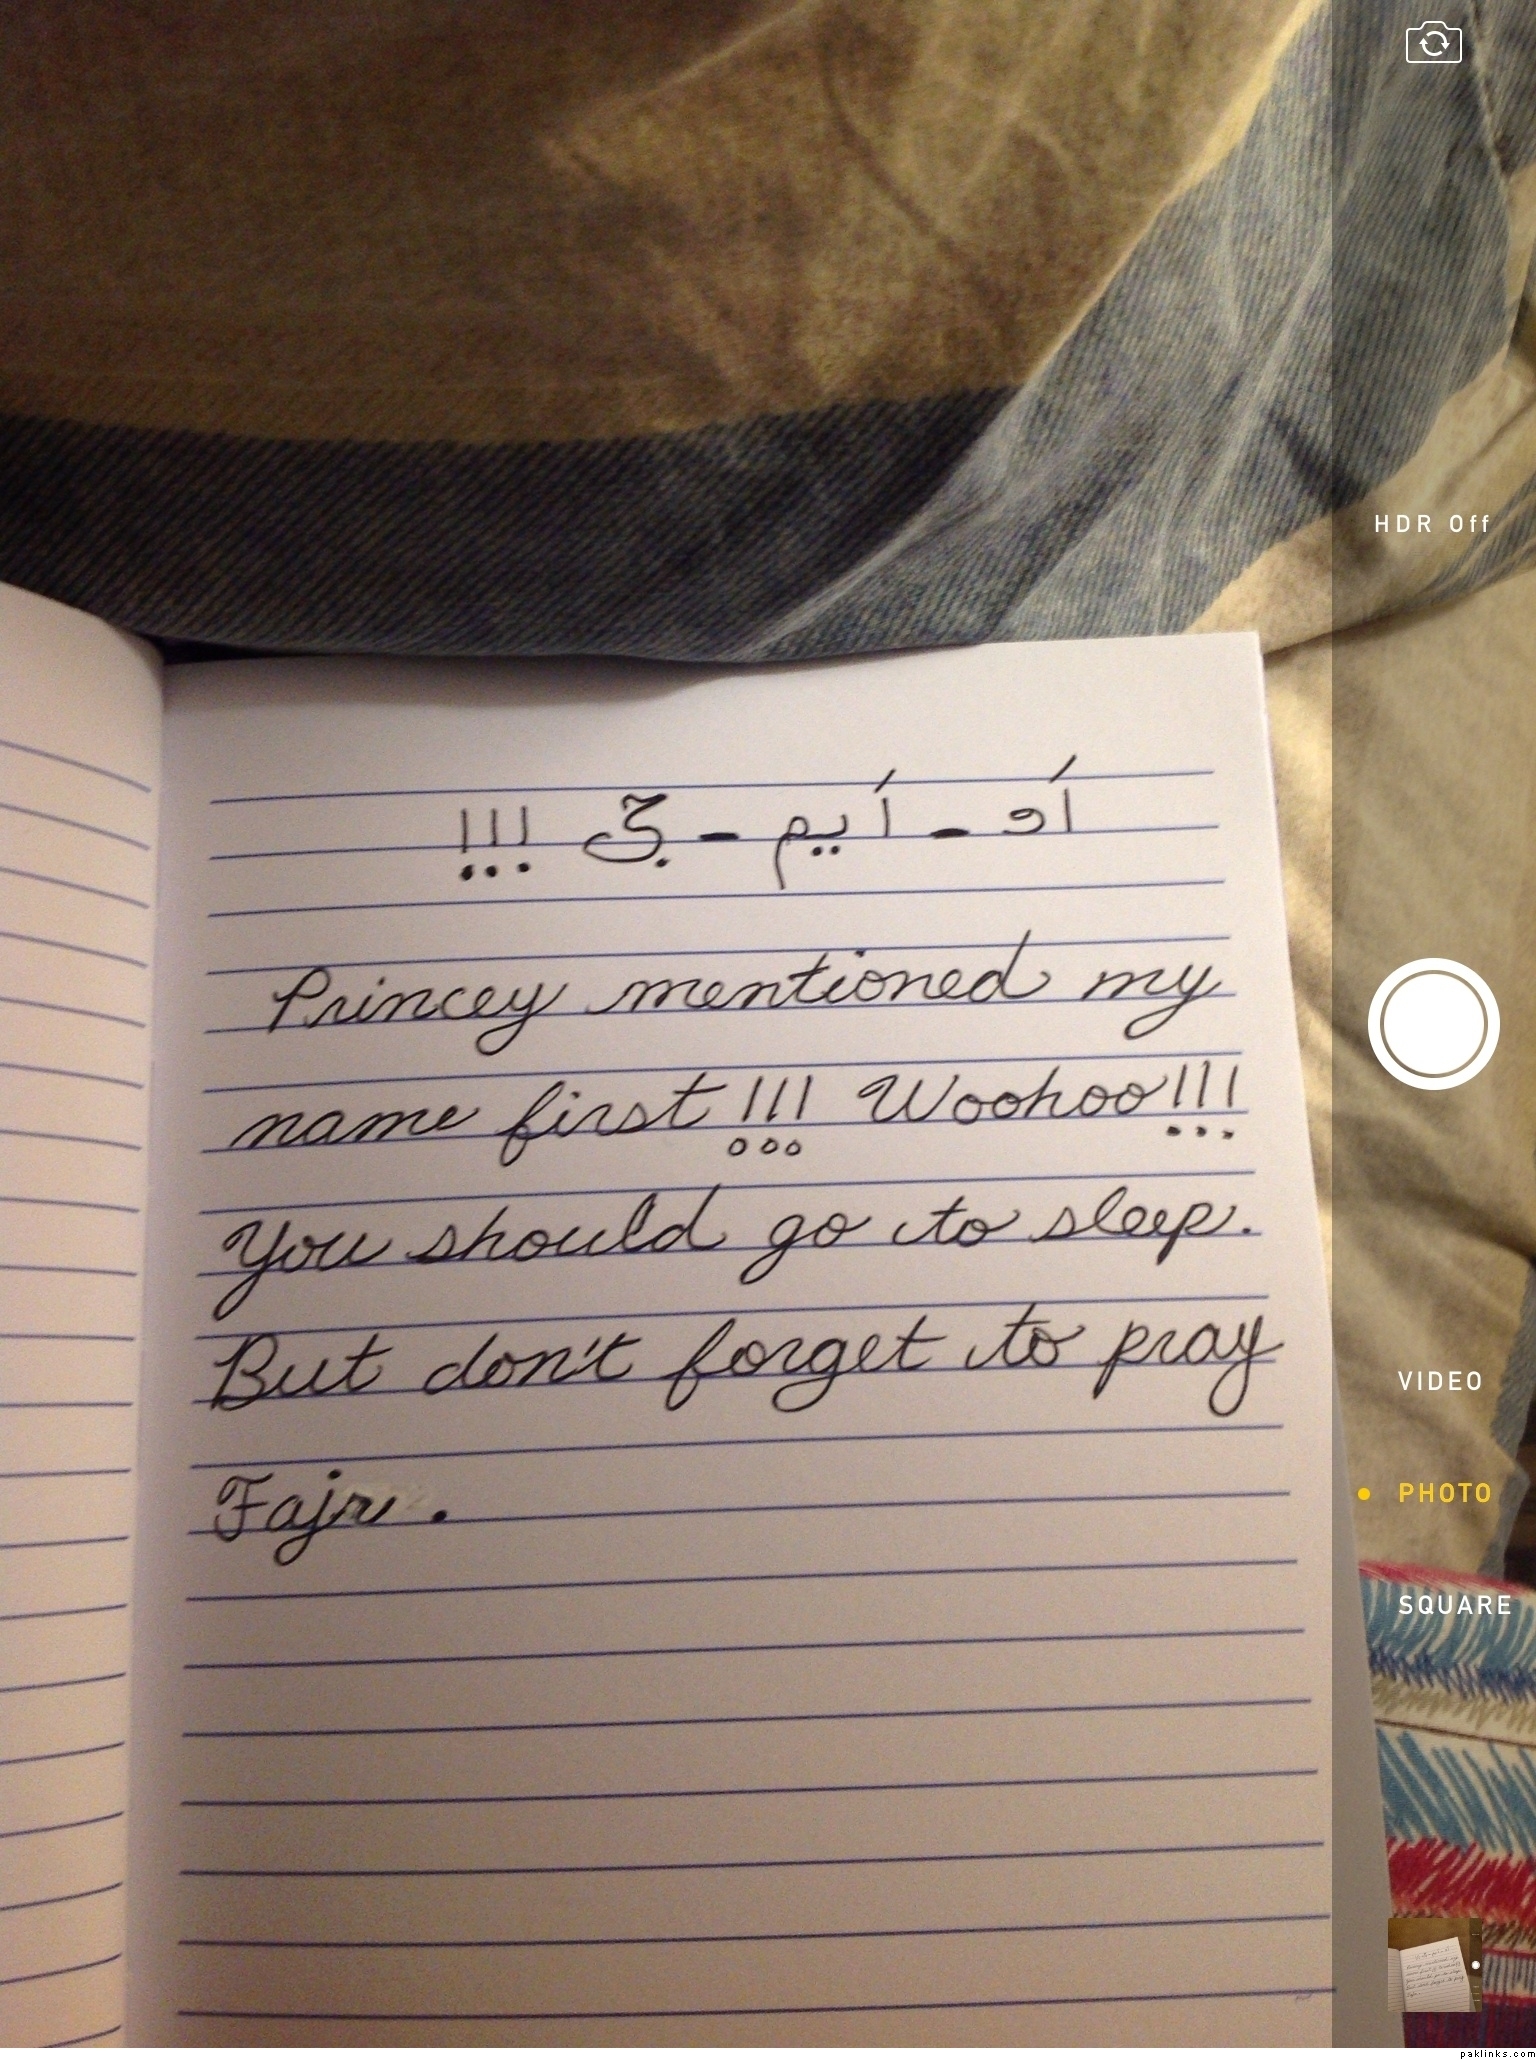 HDR Off
أَو - أَیم - جی !!!
Princey mentioned my
name first!!! Woohoo!!!
You should go to sleep.
But don't forget to pray
Fajr.
VIDEO
PHOTO
SQUARE
paklinks.com